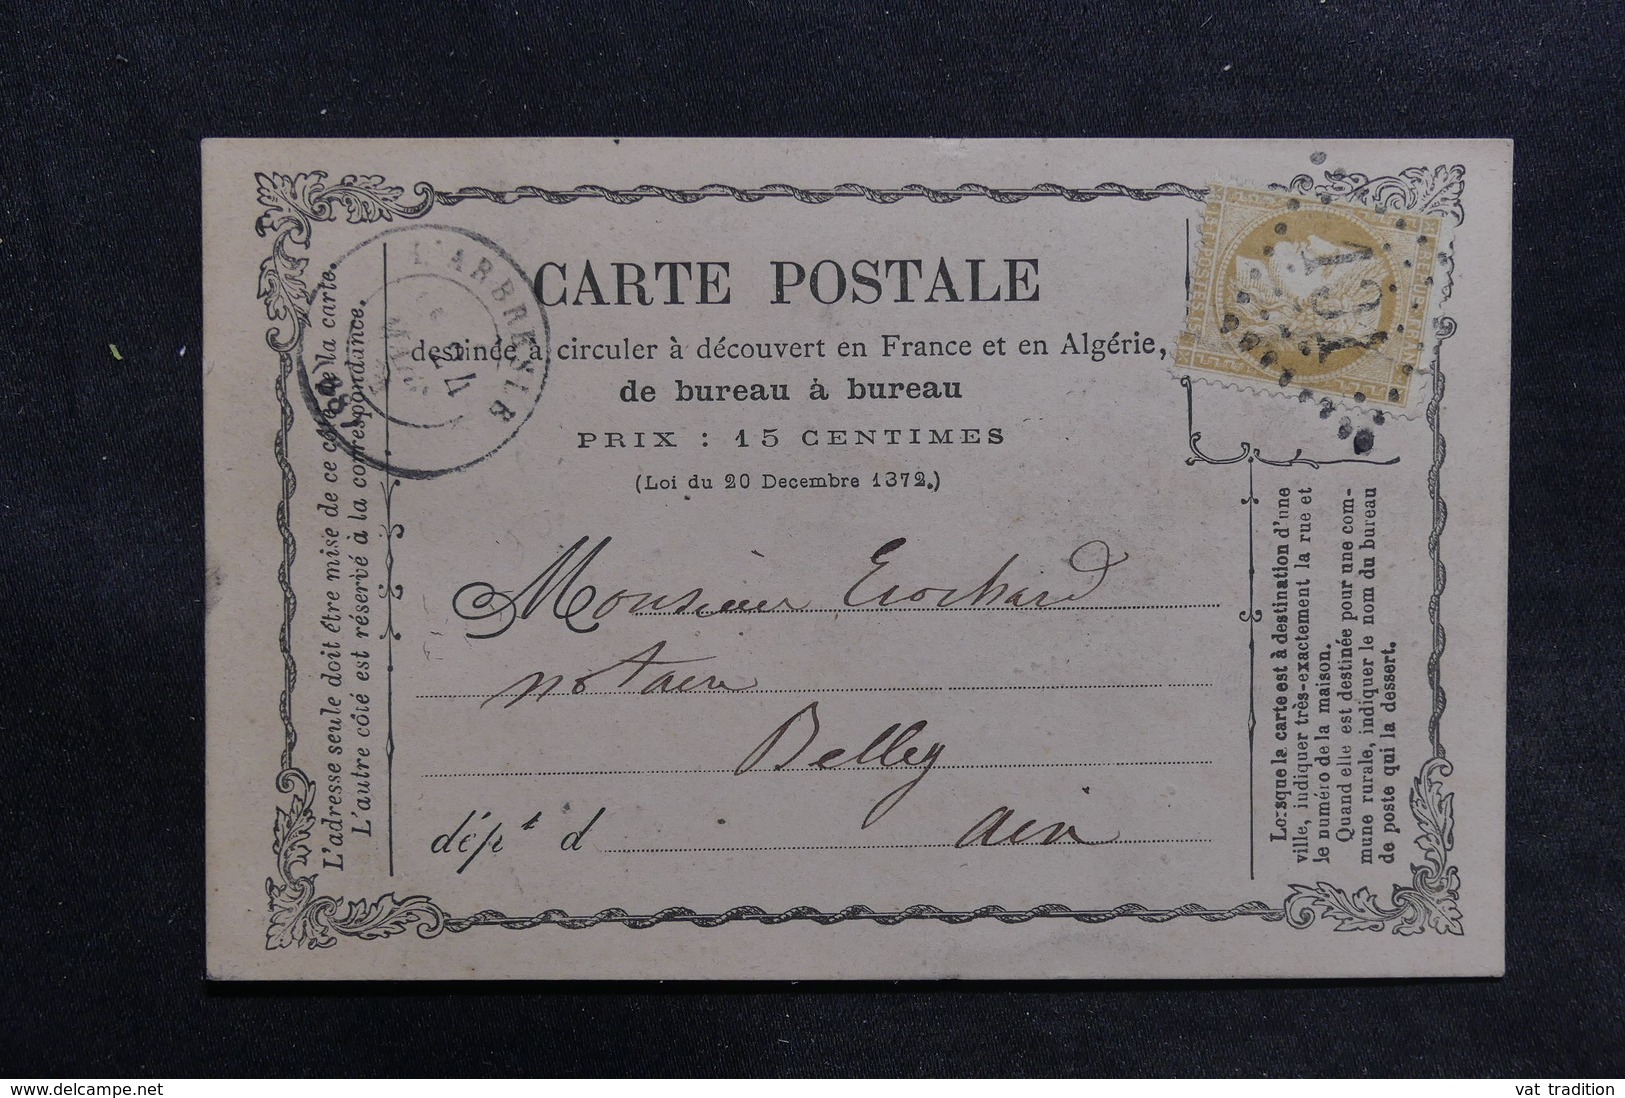 CARTE POSTALE
destinée à circuler à découvert en France et en Algérie,
de bureau à bureau
PRIX : 15 CENTIMES
(Loi du 20 Decembre 1872.)
Monsieur Crochard
notaire
Belley
dép.t d ain
L'adresse seule doit être mise de ce côté de la carte.
L'autre côté est réservé à la correspondance.
Lorsque la carte est à destination d'une
ville, indiquer très-exactement la rue et
le numéro de la maison.
Quand elle est destinée pour une com-
mune rurale, indiquer le nom du bureau
de poste qui la dessert.
L'ARBRESLE
74
www.delcampe.net
vat tradition